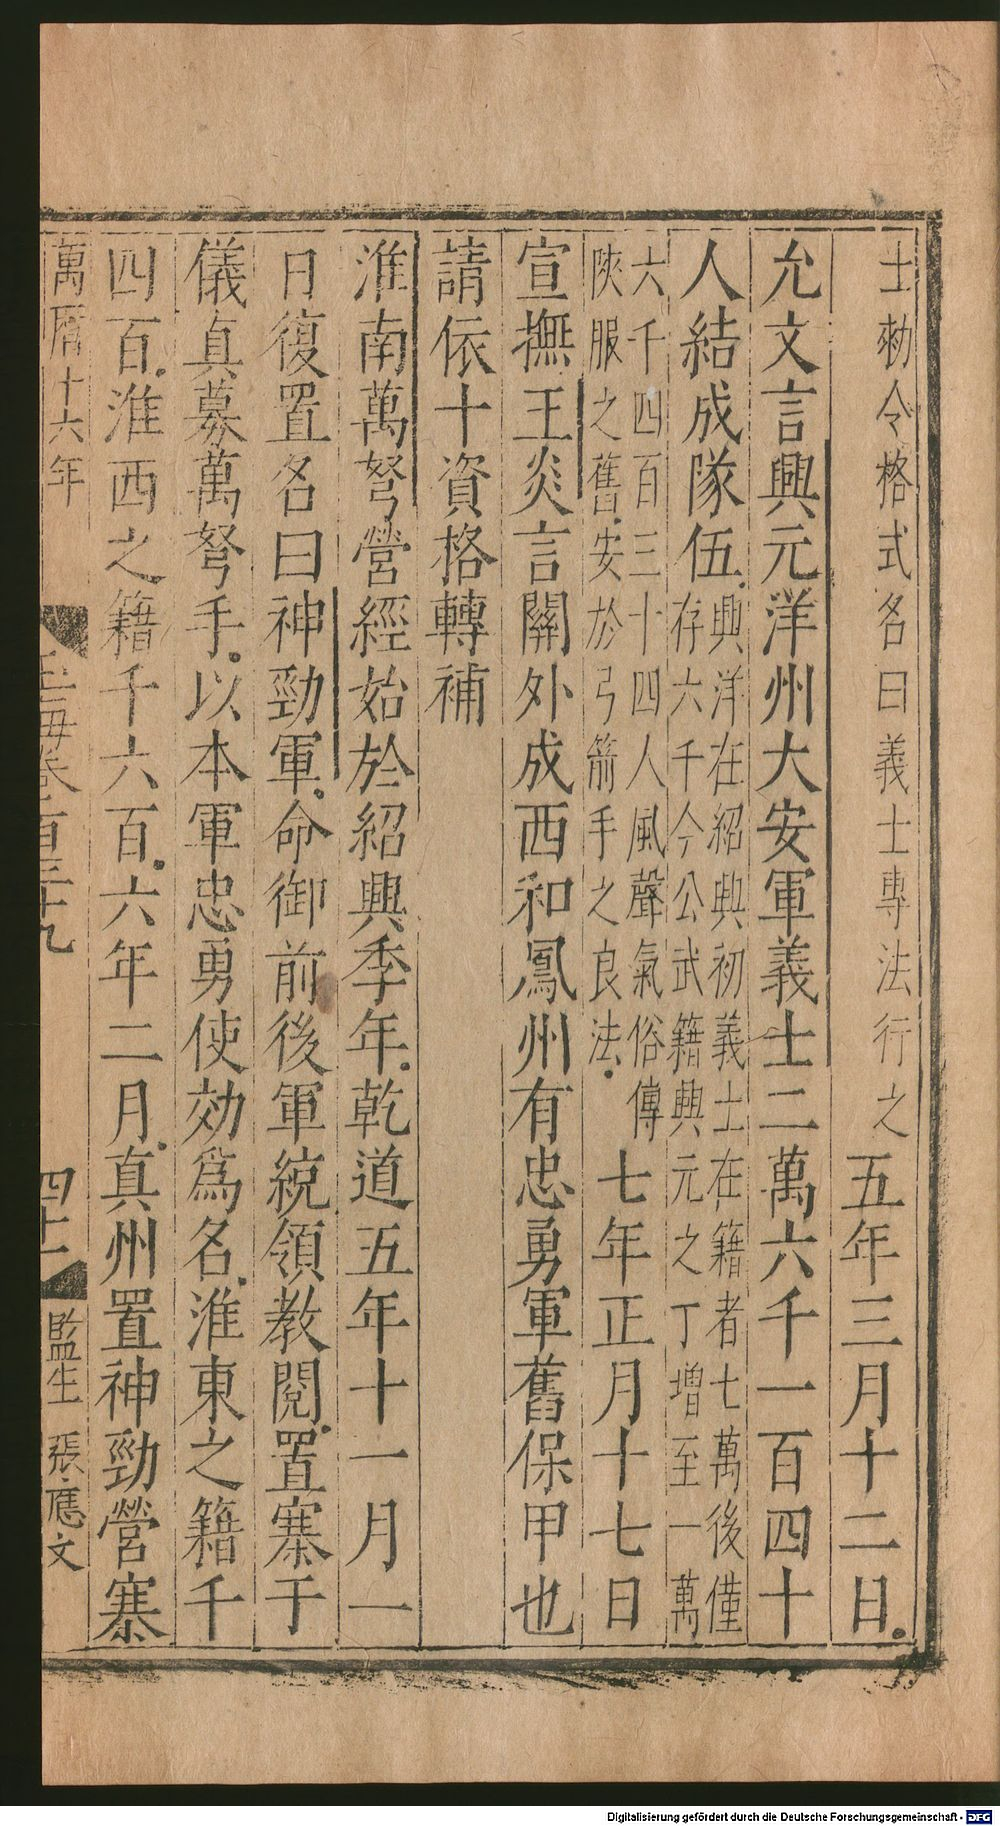 士勑令格式名曰義士專法行之五年三月十二日
允文言興元洋州大安軍義士二萬六千一百四十
人結成隊伍興洋在紹興初義士在籍者七萬後僅
存六千今公武籍興元之丁增至一萬
六千四百三十四人風聲氣俗傳
陝服之舊安於弓箭手之良法七年正月十七日
宣撫王炎言關外成西和鳳州有忠勇軍舊保甲也
請依十資格轉補
淮南萬弩營經始於紹興季年乾道五年十一月一
日復置名曰神勁軍命御前後軍統領教閱置寨于
儀真募萬弩手以本軍忠勇使効爲名淮東之籍千
四百淮西之籍千六百六年二月真州置神勁營寨
萬曆十六年
玉海卷百三十九
四十一
監生 張應文
Digitalisierung gefördert durch die Deutsche Forschungsgemeinschaft - DFG